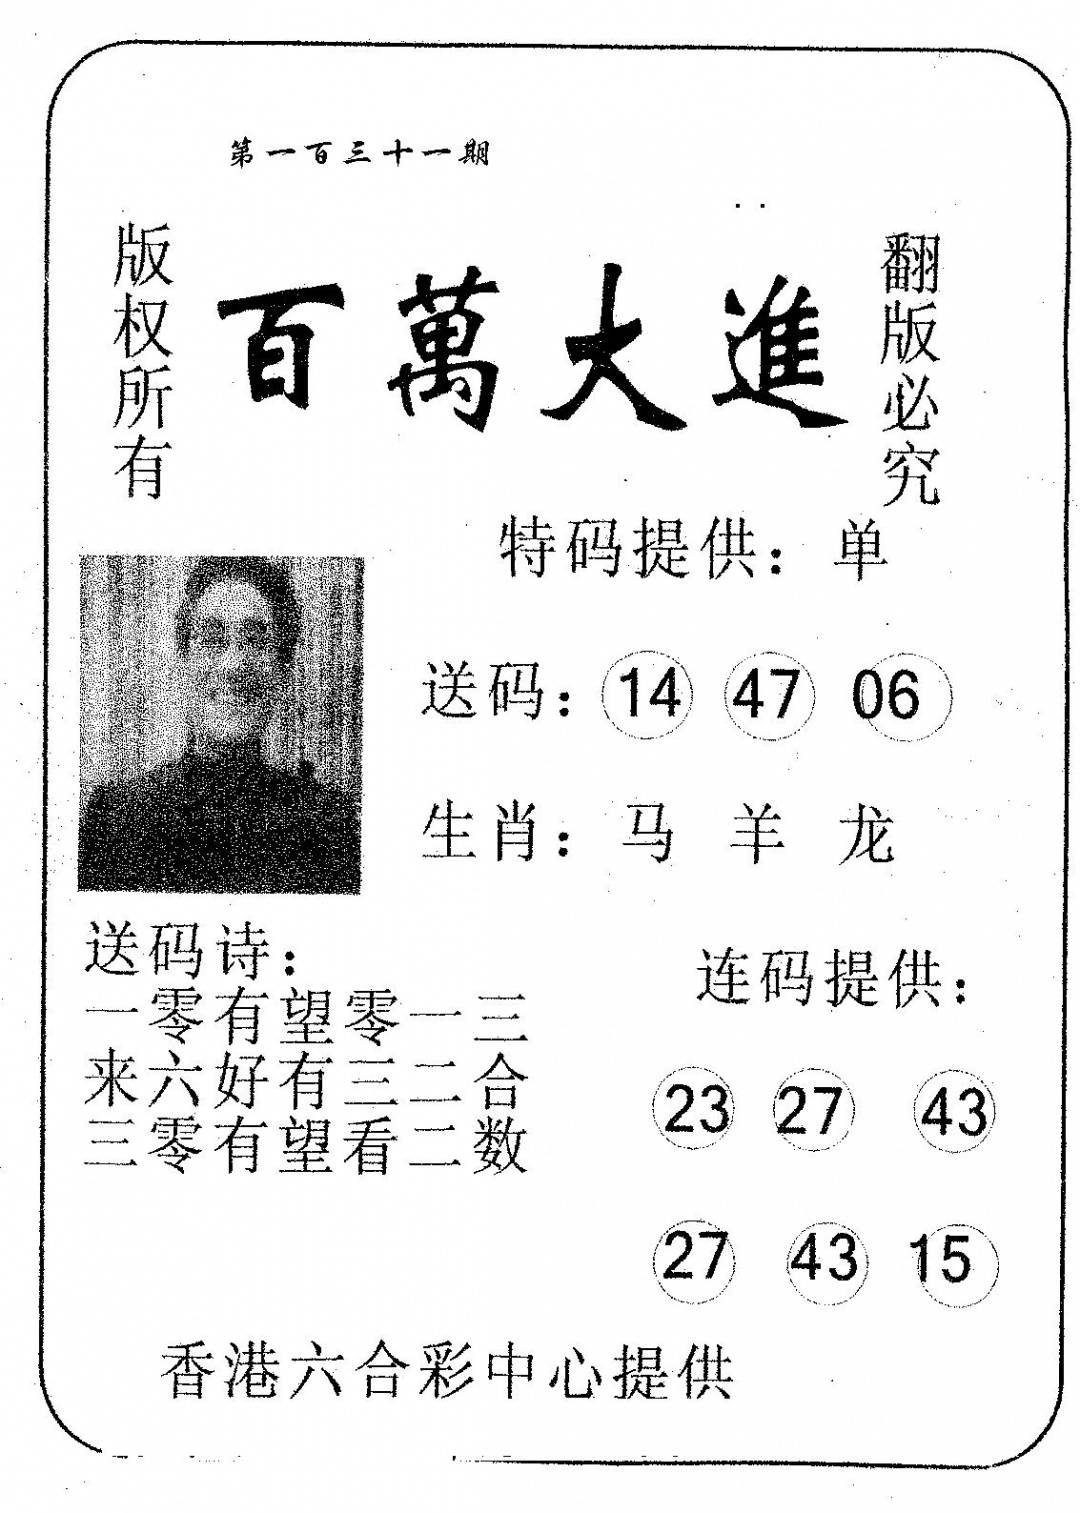 第一百三十一期
版权所有
百萬大進
翻版必究
特码提供：单
送码：14 47 06
生肖：马 羊 龙
送码诗：
一零有望零一三
来六好有三二合
三零有望看二数
连码提供：
23 27 43
27 43 15
香港六合彩中心提供